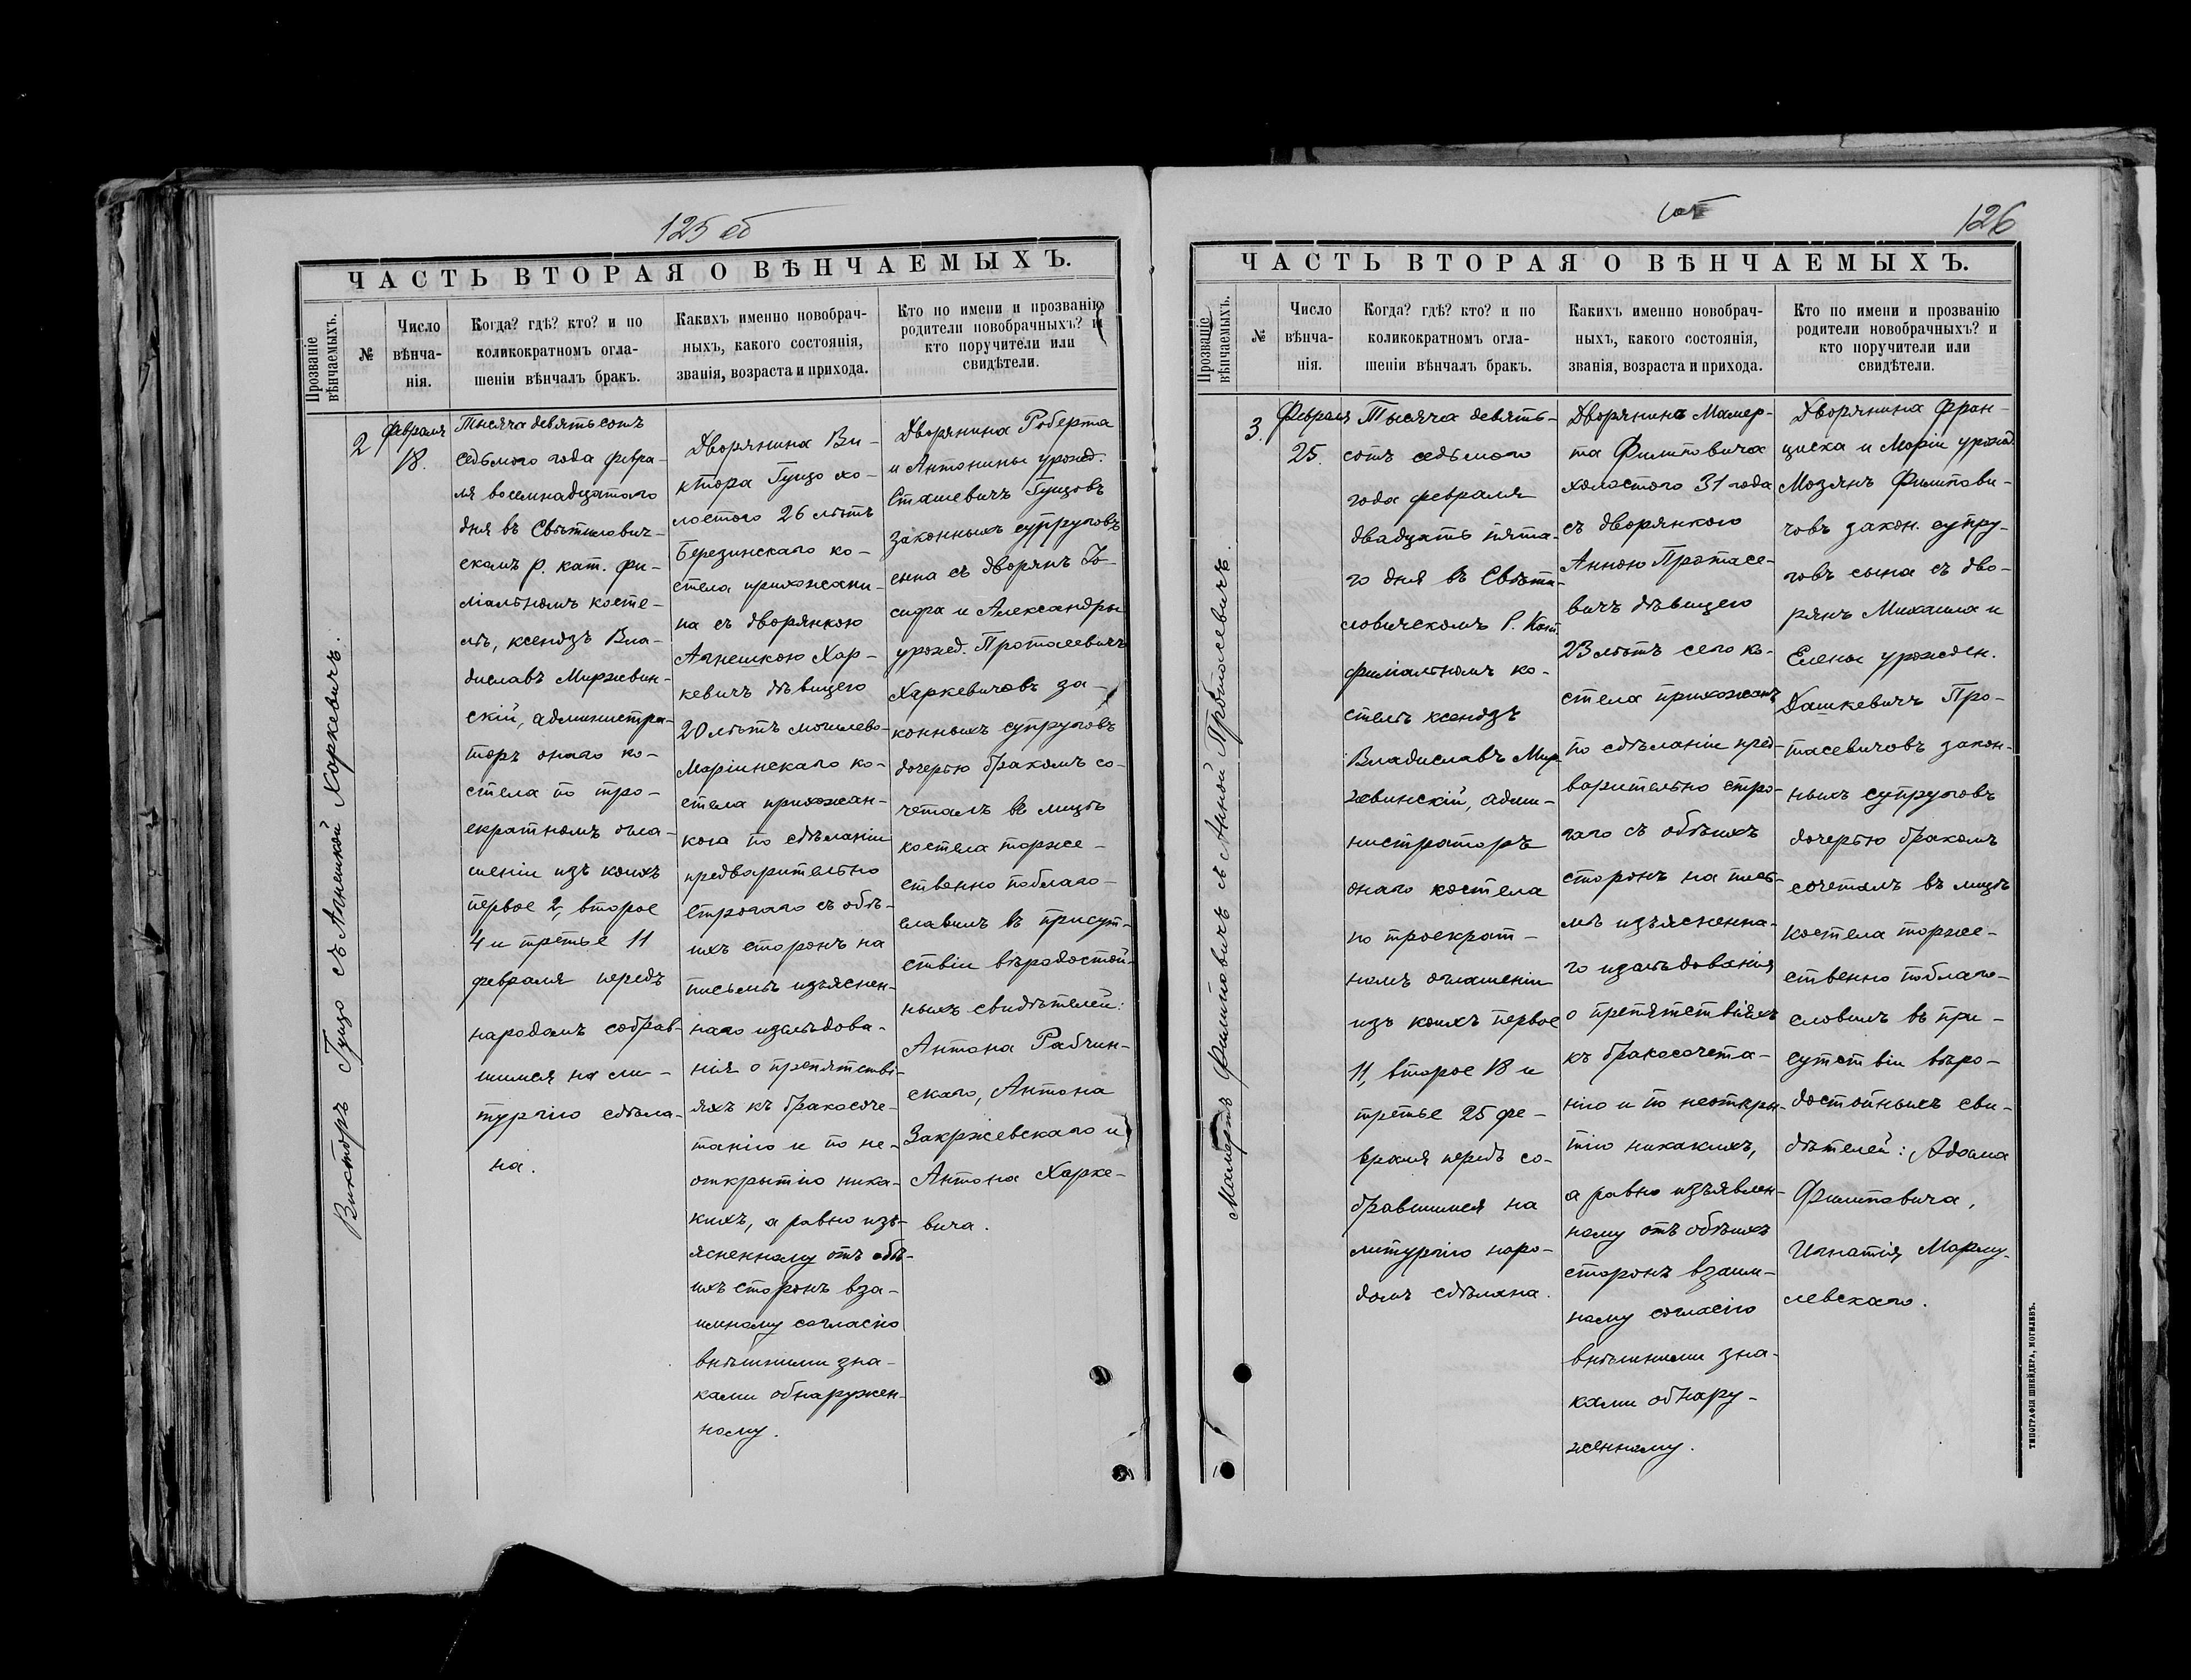 125 об
ЧАСТЬ ВТОРАЯ О ВѢНЧАЕМЫХЪ.
Прозваніе
вѣнчаемыхъ.
№
Число
вѣнча-
нія.
Когда? гдѣ? кто? и по
коликократномъ огла-
шеніи вѣнчалъ бракъ.
Какихъ именно новобрач-
ныхъ, какого состоянія,
званія, возраста и прихода.
Кто по имени и прозванію
родители новобрачныхъ? и
кто поручители или
свидѣтели.
Викторъ Гуцо съ Агнешкой Харкевичъ.
2
Февраля
18.
Тысяча девятьсотъ
седьмого года февра-
ля восемнадцатого
дня въ Свѣтилович-
скомъ р. кат. фи-
ліальномъ косте-
лѣ, ксендзъ Вла-
диславъ Миржвин-
скій, администра-
торъ онаго ко-
стела по тро-
екратномъ огла-
шеніи изъ коихъ
первое 2, второе
4 и третье 11
февраля передъ
народомъ собрав-
шимся на ли-
тургію сдѣла-
на.
Дворянина Ви-
ктора Гуцо хо-
лостого 26 лѣтъ
Березинскаго ко-
стела прихожани-
на съ дворянкою
Агнешкою Хар-
кевичъ дѣвицею
20 лѣтъ могилево-
Маріинскаго ко-
стела прихожан-
кою по сдѣланіи
предварительно
строгаго съ обѣ-
ихъ сторонъ на
письмѣ изъяснен-
наго изслѣдова-
нія о препятстві-
яхъ къ бракосоче-
танію и по не-
открытію ника-
кихъ, а равно изъ-
ясненному отъ обѣ-
ихъ сторонъ вза-
имному согласію
внѣшними зна-
ками обнаружен-
ному.
Дворянина Роберта
и Антонины урожд.
Сташевичъ Гуцовъ
законныхъ супруговъ
сына съ дворянъ Іо-
сифа и Александры
урожд. Протасевичъ
Харкевичовъ за-
конныхъ супруговъ
дочерью бракомъ со-
четалъ въ лицѣ
костела торже-
ственно поблаго-
славилъ въ присут-
ствіи вѣродостой-
ныхъ свидѣтелей:
Антона Рабчин-
скаго, Антона
Закржевскаго и
Антона Харке-
вича.
126
ЧАСТЬ ВТОРАЯ О ВѢНЧАЕМЫХЪ.
Прозваніе
вѣнчаемыхъ.
№
Число
вѣнча-
нія.
Когда? гдѣ? кто? и по
коликократномъ огла-
шеніи вѣнчалъ бракъ.
Какихъ именно новобрач-
ныхъ, какого состоянія,
званія, возраста и прихода.
Кто по имени и прозванію
родители новобрачныхъ? и
кто поручители или
свидѣтели.
Мамертъ Филиповичъ съ Анной Протасевичъ.
3.
Февраля
25.
Тысяча девять-
сотъ седьмого
года февраля
двадцать пята-
го дня въ Свѣти-
ловичскомъ Р. Кат.
филіальномъ ко-
стелѣ ксендзъ
Владиславъ Мир-
жвинскій, адми-
нистраторъ
онаго костела
по троекрат-
номъ оглашеніи
изъ коихъ первое
11, второе 18 и
третье 25 фе-
враля передъ со-
бравшимся на
литургію наро-
домъ сдѣлана.
Дворянина Мамер-
та Филиповича
холостого 31 года
съ дворянкою
Анною Протасе-
вичъ дѣвицею
23 лѣтъ сего ко-
стела прихожанъ
по сдѣланіи пред-
варительно стро-
гаго съ обѣихъ
сторонъ на пись-
мѣ изъясненна-
го изслѣдованія
о препятствіяхъ
къ бракосочета-
нію и по неоткры-
тію никакихъ,
а равно изъявлен-
ному отъ обѣихъ
сторонъ взаим-
ному согласію
внѣшними зна-
ками обнару-
женному.
Дворянина Фран-
циска и Маріи урожд.
Мозянъ Филипови-
човъ закон. супру-
говъ сына съ дво-
рянъ Михаила и
Елены урожден.
Дашкевичъ Про-
тасевичовъ закон-
ныхъ супруговъ
дочерью бракомъ
сочеталъ въ лицѣ
костела торже-
ственно поблаго-
словилъ въ при-
сутствіи вѣро-
достойныхъ сви-
дѣтелей: Адама
Филиповича,
Игнатія Марцу-
левскаго.
ТИПОГРАФІЯ ШНЕЙДЕРА, МОГИЛЕВЪ.